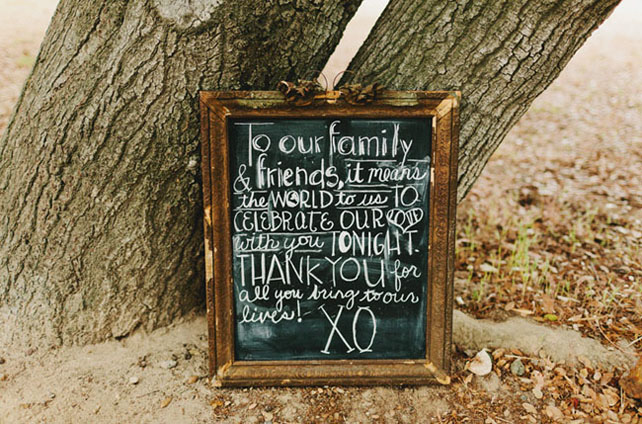 To our family
& friends, it means
the WORLD to us TO
CELEBRATE OUR LOVE
with you TONIGHT.
THANK YOU for
all you bring to our
lives!
XO